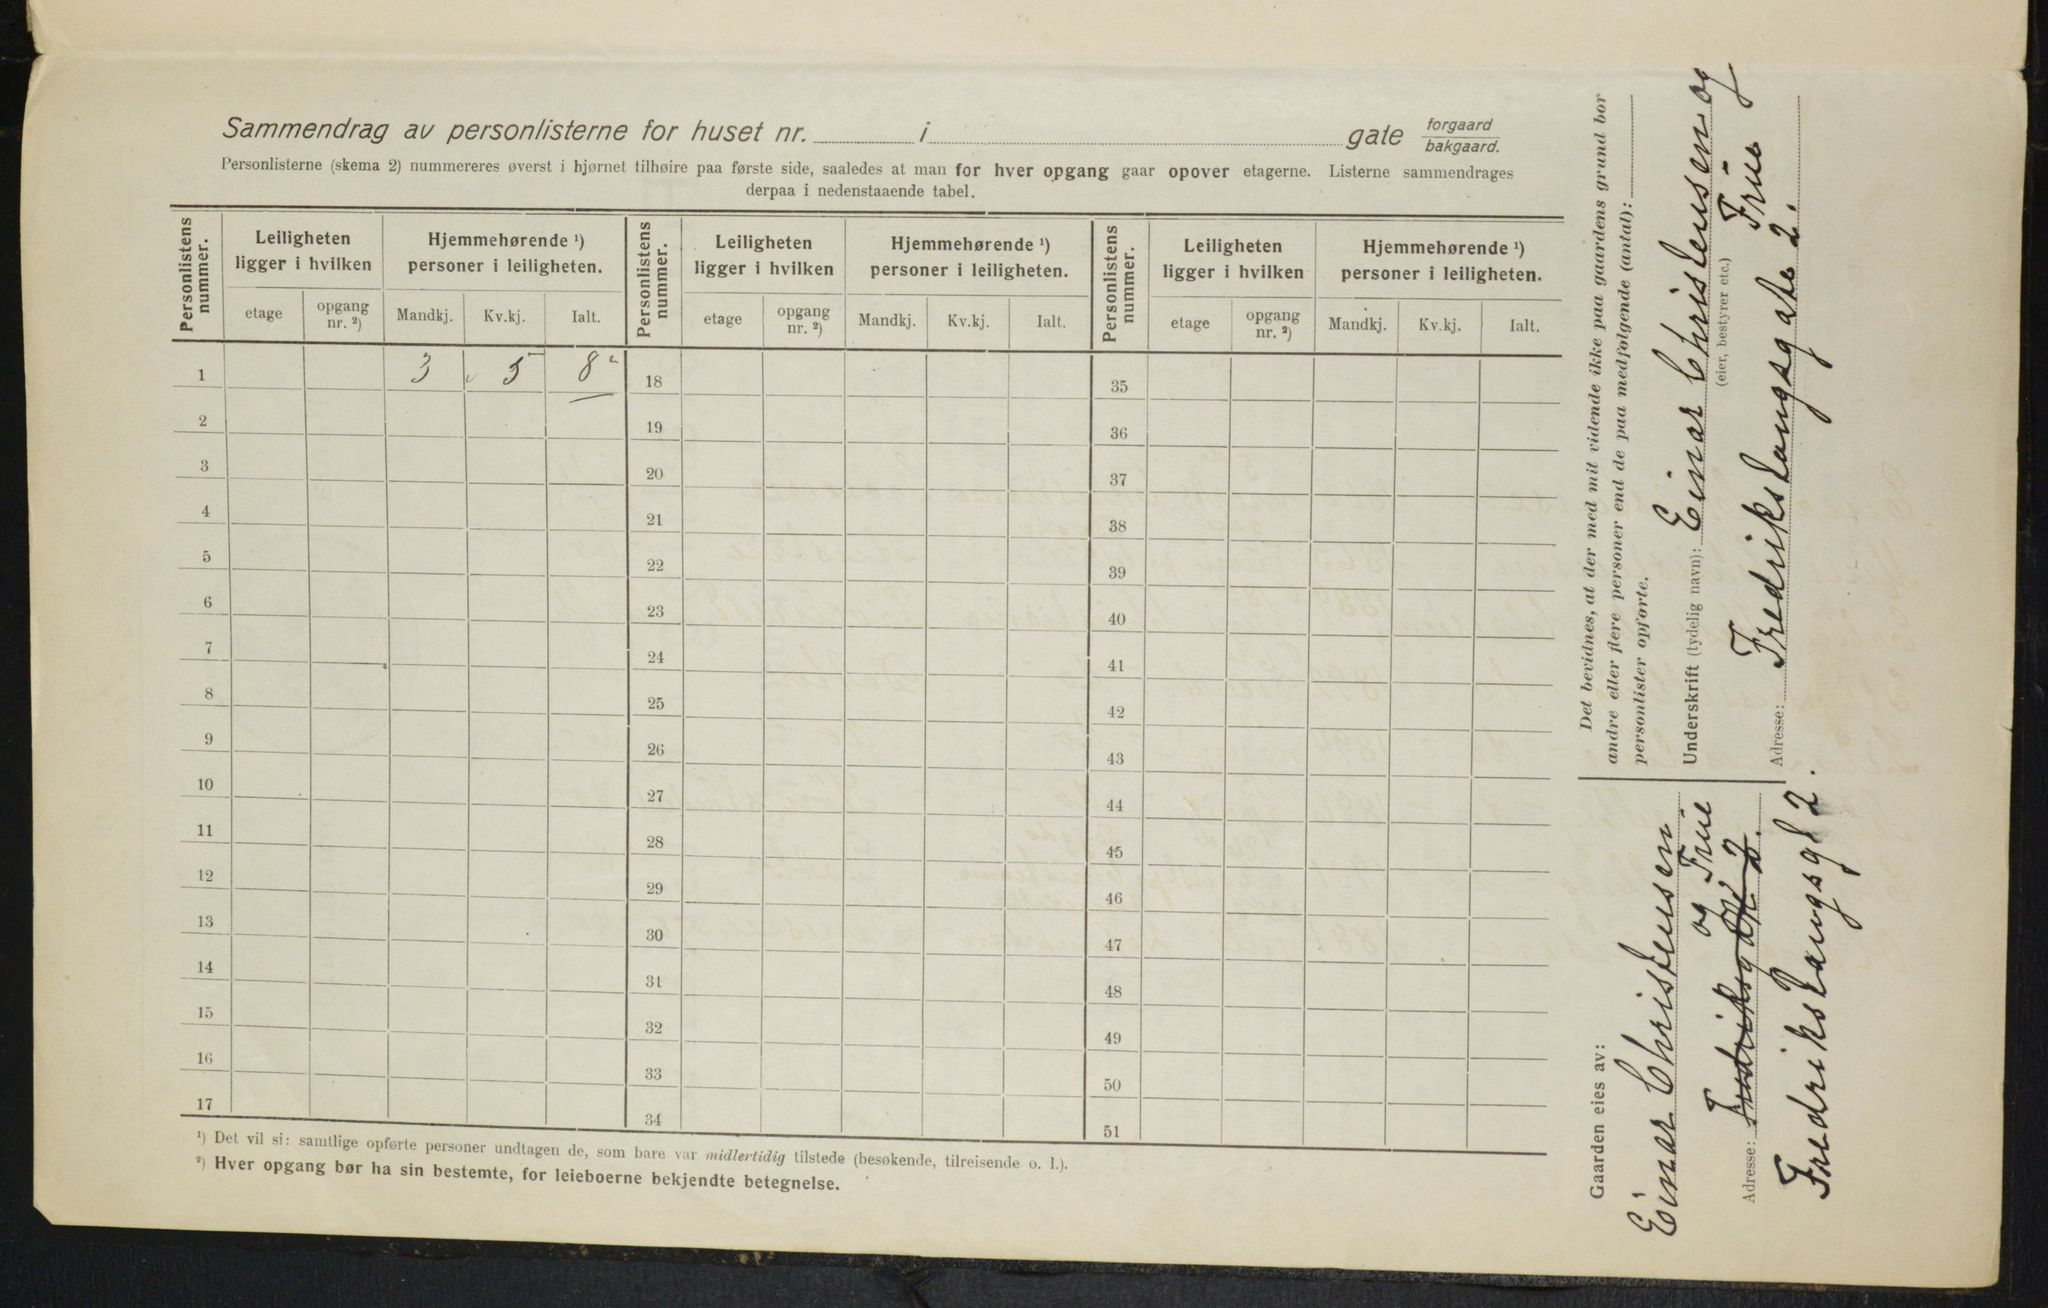 Sammendrag av personlisterne for huset nr. i gate forgaard bakgaard.
Personlisterne (skema 2) nummereres øverst i hjørnet tilhøire paa første side, saaledes at man for hver opgang gaar opover etagerne. Listerne sammendrages
derpaa i nedenstaaende tabel.
Personlistens nummer. Leiligheten ligger i hvilken Hjemmehørende ¹) personer i leiligheten. Personlistens nummer. Leiligheten ligger i hvilken Hjemmehørende ¹) personer i leiligheten. Personlistens nummer. Leiligheten ligger i hvilken Hjemmehørende ¹) personer i leiligheten.
etage opgang nr. ²) Mandkj. Kv.kj. Ialt. etage opgang nr. ²) Mandkj. Kv.kj. Ialt. etage opgang nr. ²) Mandkj. Kv.kj. Ialt.
1 3 5 8 18 35
2 19 36
3 20 37
4 21 38
5 22 39
6 23 40
7 24 41
8 25 42
9 26 43
10 27 44
11 28 45
12 29 46
13 30 47
14 31 48
15 32 49
16 33 50
17 34 51
¹) Det vil si: samtlige opførte personer undtagen de, som bare var midlertidig tilstede (besøkende, tilreisende o. l.).
²) Hver opgang bør ha sin bestemte, for leieboerne bekjendte betegnelse.
Det bevidnes, at der med mit vidende ikke paa gaardens grund bor
andre eller flere personer end de paa medfølgende (antal):
personlister opførte.
Underskrift (tydelig navn): Einar Christensen og
(eier, bestyrer etc.) Frue
Adresse: Frederikslangsgate 2.
Gaarden eies av:
Einar Christensen
og Frue
Adresse:
Fredrikslangsg 2.